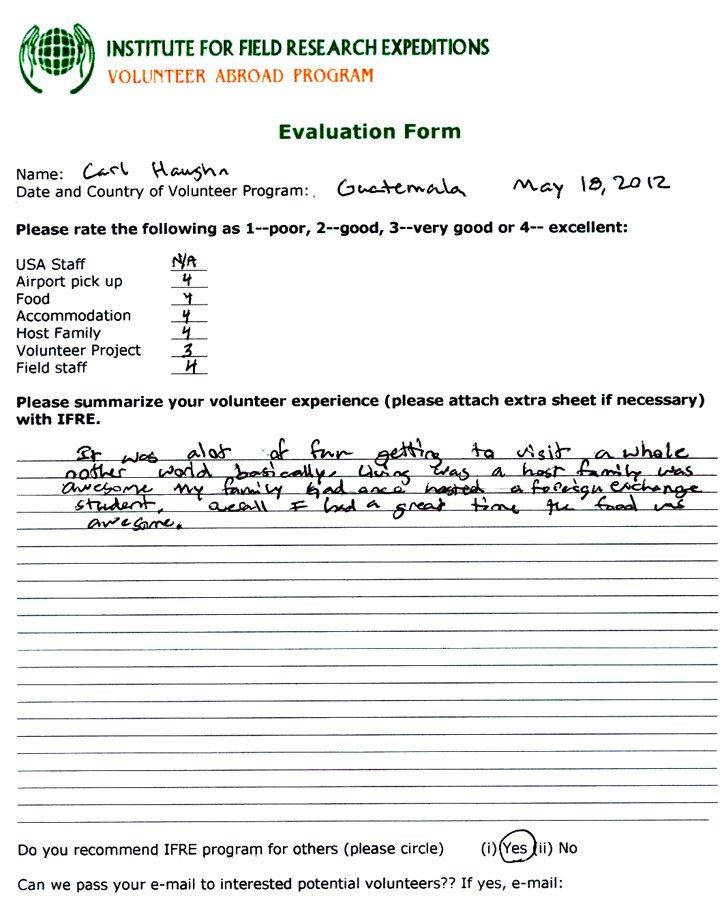 INSTITUTE FOR FIELD RESEARCH EXPEDITIONS
VOLUNTEER ABROAD PROGRAM
Evaluation Form
Name: Carl Haughn
Date and Country of Volunteer Program: Guatemala May 18, 2012
Please rate the following as 1--poor, 2--good, 3--very good or 4-- excellent:
USA Staff N/A
Airport pick up 4
Food 4
Accommodation 4
Host Family 4
Volunteer Project 3
Field staff 4
Please summarize your volunteer experience (please attach extra sheet if necessary)
with IFRE.
It was alot of fun getting to visit a whole
nother world basically. Living was a host family was
awesome my family had hosted a foreign exchange
student. I had a great time the food was
awesome.
Do you recommend IFRE program for others (please circle) (i) Yes (ii) No
Can we pass your e-mail to interested potential volunteers?? If yes, e-mail: